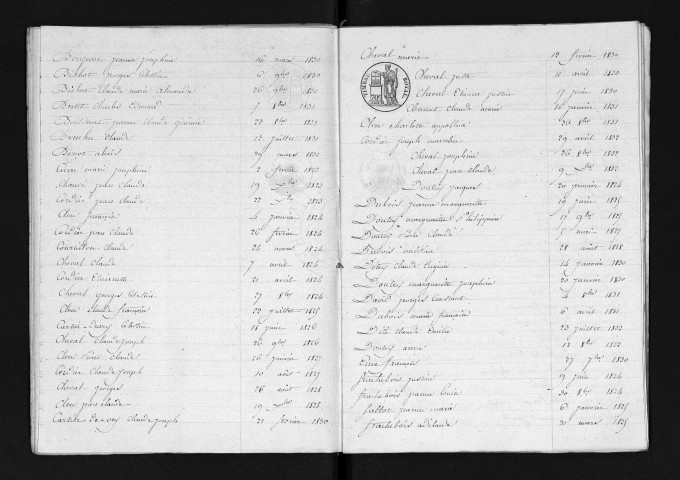 Bourgeon jeanne josephine 16 mars 1830
Bichot georges Célestin 6 9bre 1830
Bichot Claude marie Alexandre 26 9bre 1830
Brevet charles Edouard 7 8bre 1831
jeanne claude 27 8bre 1831
claude 12 juillet 1831
Benoit alexis 29 mars 1832
marie josephine 2 février 1823
jean Claude 19 1823
Cordier jean claude 27 1823
Clerc françois 4 janvier 1824
Cordier jean claude 26 février 1824
Claude 24 mars 1824
Cheval Claude 7 avril 1824
Cordier Etiennette 21 avril 1824
Cheval georges Célestin 27 8bre 1824
Clerc claude françois 22 juillet 1825
Cartier-devoy Célestin 18 juin 1826
Cheval Claude joseph 26 9bre 1826
Clerc Claude 26 janvier 1827
Cordier Claude joseph 10 août 1827
Cheval georges 26 août 1828
Clerc jean claude 19 1828
Cartier-devoy claude joseph 21 février 1830
Cheval marie 12 février 1830
TIMBRE ROYAL
Cheval juste 11 avril 1830
Cheval Etienne justin 17 juin 1830
Claude marie 16 janvier 1831
Clerc charlotte appolline 26 8bre 1831
Cordier joseph marcelin 29 avril 1832
Cheval josephine 26 8bre 1832
Cheval jean claude 9 1832
Doutey jacques 20 janvier 1824
Dubois jeanne marguerite 19 juin 1825
Doutey marguerite Philippine 17 9bre 1825
Claude 5 mai 1827
Dubois 28 août 1828
Claude Eugène 14 janvier 1830
Doutey marguerite josephine 20 janvier 1830
David georges Constant 4 8bre 1831
Dubois marie 6 avril 1831
claude Emilie 23 juillet 1832
Doutey anne 12 8bre 1832
françois 27 7bre 1830
Frachebois justine 19 juin 1824
Frachebois jeanne louise 30 8bre 1824
jeanne marie 6 janvier 1825
Frachebois adélaïde 20 mars 1825